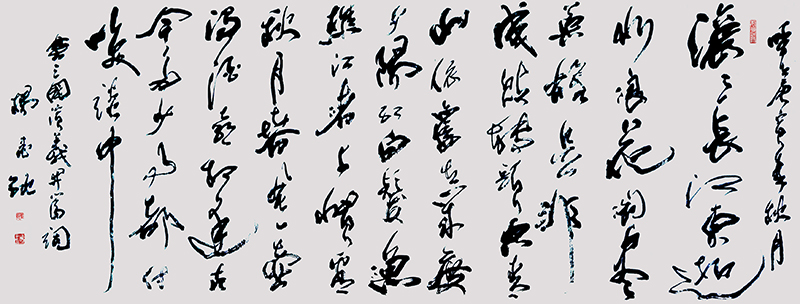 秋月
滚々长江東逝
水浪花淘尽
英雄是非
成败转头空青
山依舊在几度
夕阳红白髮渔
樵江渚上惯看
秋月春风一壶
浊酒喜相逢古
今多少事都付
笑谈中
三國演義开篇词